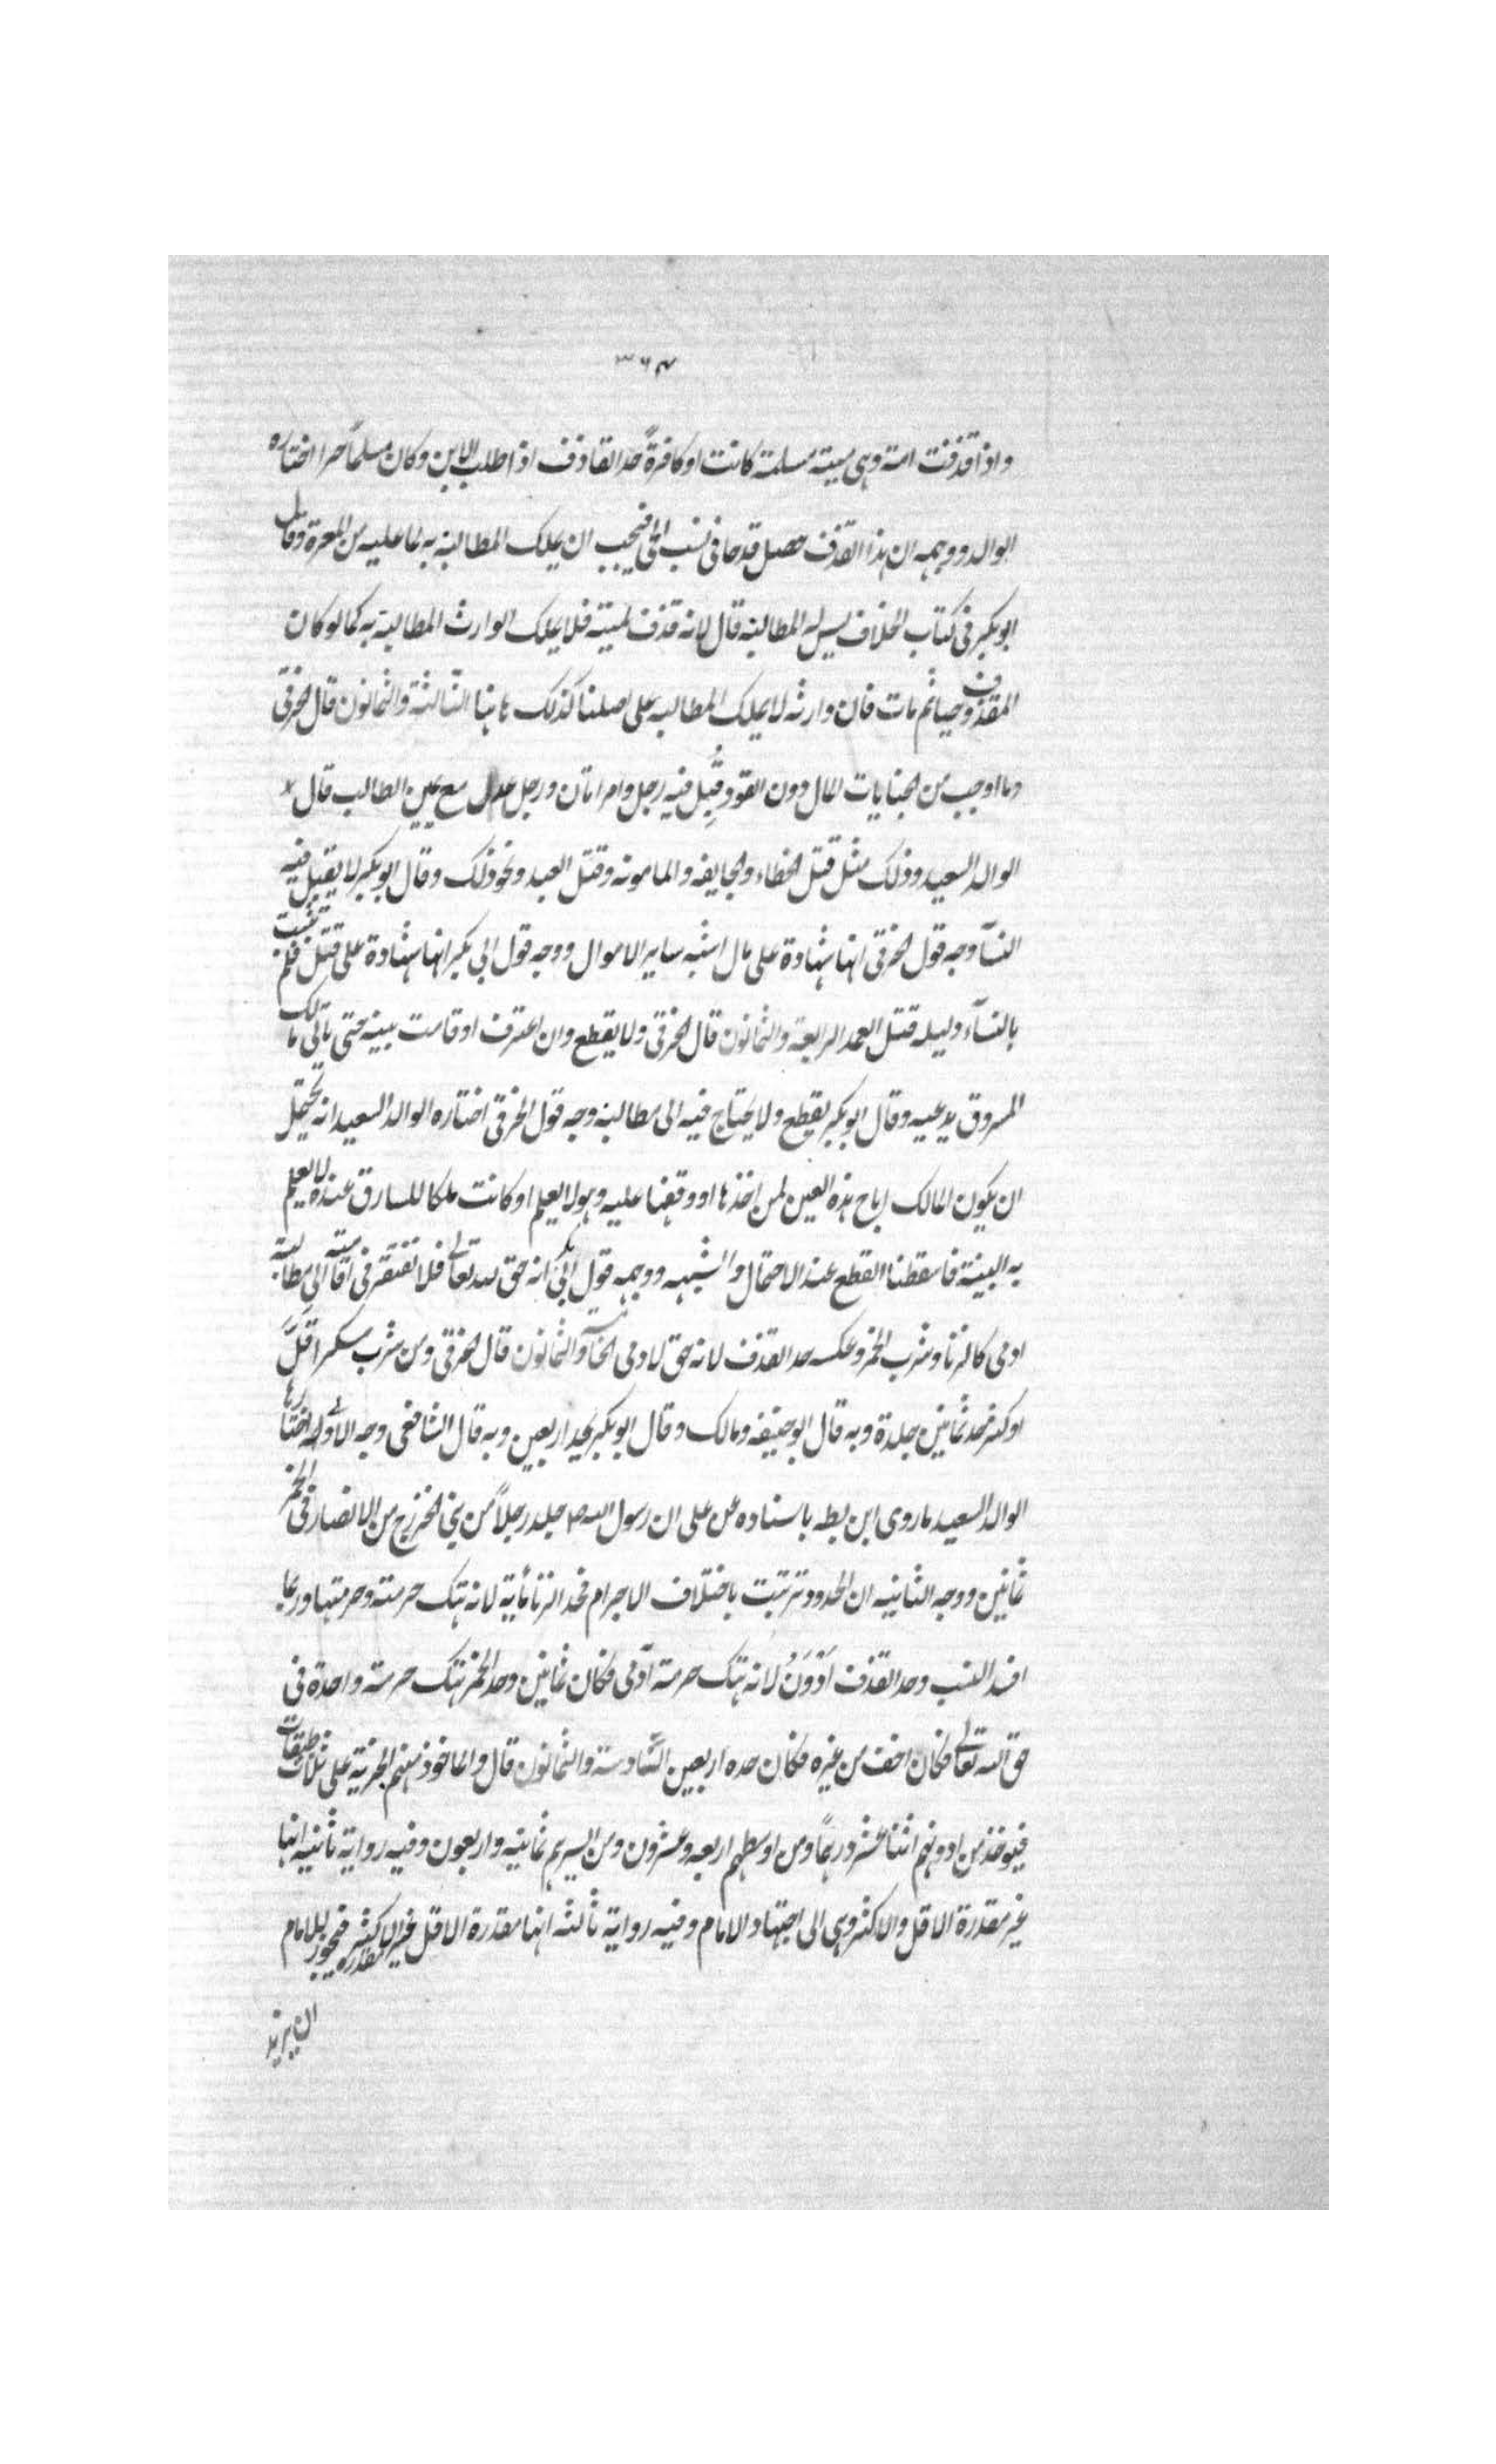 ٣٦٤
واذا قذفت امه وهي ميتة مسلمة كانت او كافرةً حد القاذف اذا طلب الابن وكان مسلماً حرا اختاره
الوالد ووجهه ان هذا القذف حصل قدحا في نسب الحي فيجب ان يملك المطالبة به لما عليه من المعرة وقال
ابو بكر في كتاب الخلاف ليس له المطالبة قال لانه قذف لميتة فلا يملك الوارث المطالبة به كما لو كان
المقذوف حيا ثم مات فان وارثه لا يملك المطالبة على اصلنا كذلك هاهنا الثالثة والثمانون قال الخرقي
وما اوجب من الجنايات المال دون القود قُبِل فيه رجل وامراتان ورجل عدل مع يمين الطالب قال
الوالد السعيد وذلك مثل قتل الخطاء والجايفه والمامونه وقتل العبد ونحو ذلك وقال ابو بكر لا يقبل فيه
النسآ وجه قول الخرقي انها شهادة على مال اشبه ساير الاموال ووجه قول ابي بكر انها شهادة على قتل فلم تثبت
بالنسآء دليله قتل العمد الرابعة والثمانون قال الخرقي ولا يقطع وان اعترف او قامت بينه حتى ياتي مالك
المسروق يدعيه وقال ابو بكر يقطع ولا يحتاج فيه الى مطالبة وجه قول الخرقي اختاره الوالد السعيد انه يحتمل
ان يكون المالك اباح هذه العين لمن اخذها او وقفها عليه وهو لا يعلم او كانت ملكا للسارق عنده لا يعلم
به البينة فاسقطنا القطع عند الاحتمال والشبهه ووجهه قول ابي بكر انه حق لله تعالى فلا تفتقر في اقامته الى مطالبة
ادمي كالزنا وشرب الخمر وعكسه حد القذف لانه حق لادمي الخامسة والثمانون قال الخرقي ومن شرب مسكرا قَلَّ
او كثر حد ثمانين جلدة وبه قال ابو حنيفه ومالك وقال ابو بكر يحد اربعين وبه قال الشافعي وجه الاولى اختارها
الوالد السعيد ما روى ابن بطه باسناده عن علي ان رسول الله ص جلد رجلاً من بني الخزرج من الانصار في الخمر
ثمانين ووجه الثانيه ان الحدود ترتبت باختلاف الاجرام فحد الزنا مأية لانه هتك حرمته وحرمتها وربما
افسد النسب وحد القذف اَدْوَنُ لانه هتك حرمة آدمي فكان ثمانين وحد الخمر هتك حرمة واحدة في
حق الله تعالى فكان اخف من غيره فكان حده اربعين السّادسة والثمانون قال والماخوذ منهم الجزية على ثلاث طبقات
فيوخذ من ادونهم اثنا عشر درهمًا ومن اوسطهم اربعه وعشرون ومن ايسرهم ثمانيه واربعون وفيه رواية ثانيه انها
غير مقدرة الاقل والاكثر وهي الى اجتهاد الامام وفيه رواية ثالثه انها مقدرة الاقل غير مقدرة الاكثر فيجوز للامام
ان يزيد